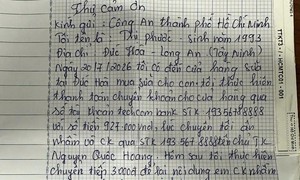 Thư cảm ơn
Kính gửi: Công An thành phố Hồ Chí Minh
Tôi tên là: Thị Phước - sinh năm 1993
Địa chỉ: Đức Hòa - Long An (Tây Ninh)
Ngày 20/1/2026 tôi có đến cửa hàng sữa
tại Đức Hòa mua sữa cho con tôi thực hiện
thanh toán chuyển khoản cho cửa hàng qua
số tài khoản techcombank STK 193567878888
với số tiền 927.000 nhưng lúc chuyển tôi ấn
nhầm và CK qua STK 193 567 8888 tên chủ TK
Nguyen Quoc Hoang. Hôm sau tôi thực hiện
chuyển tiếp 3.000đ để lại nội dung em CK nhầm